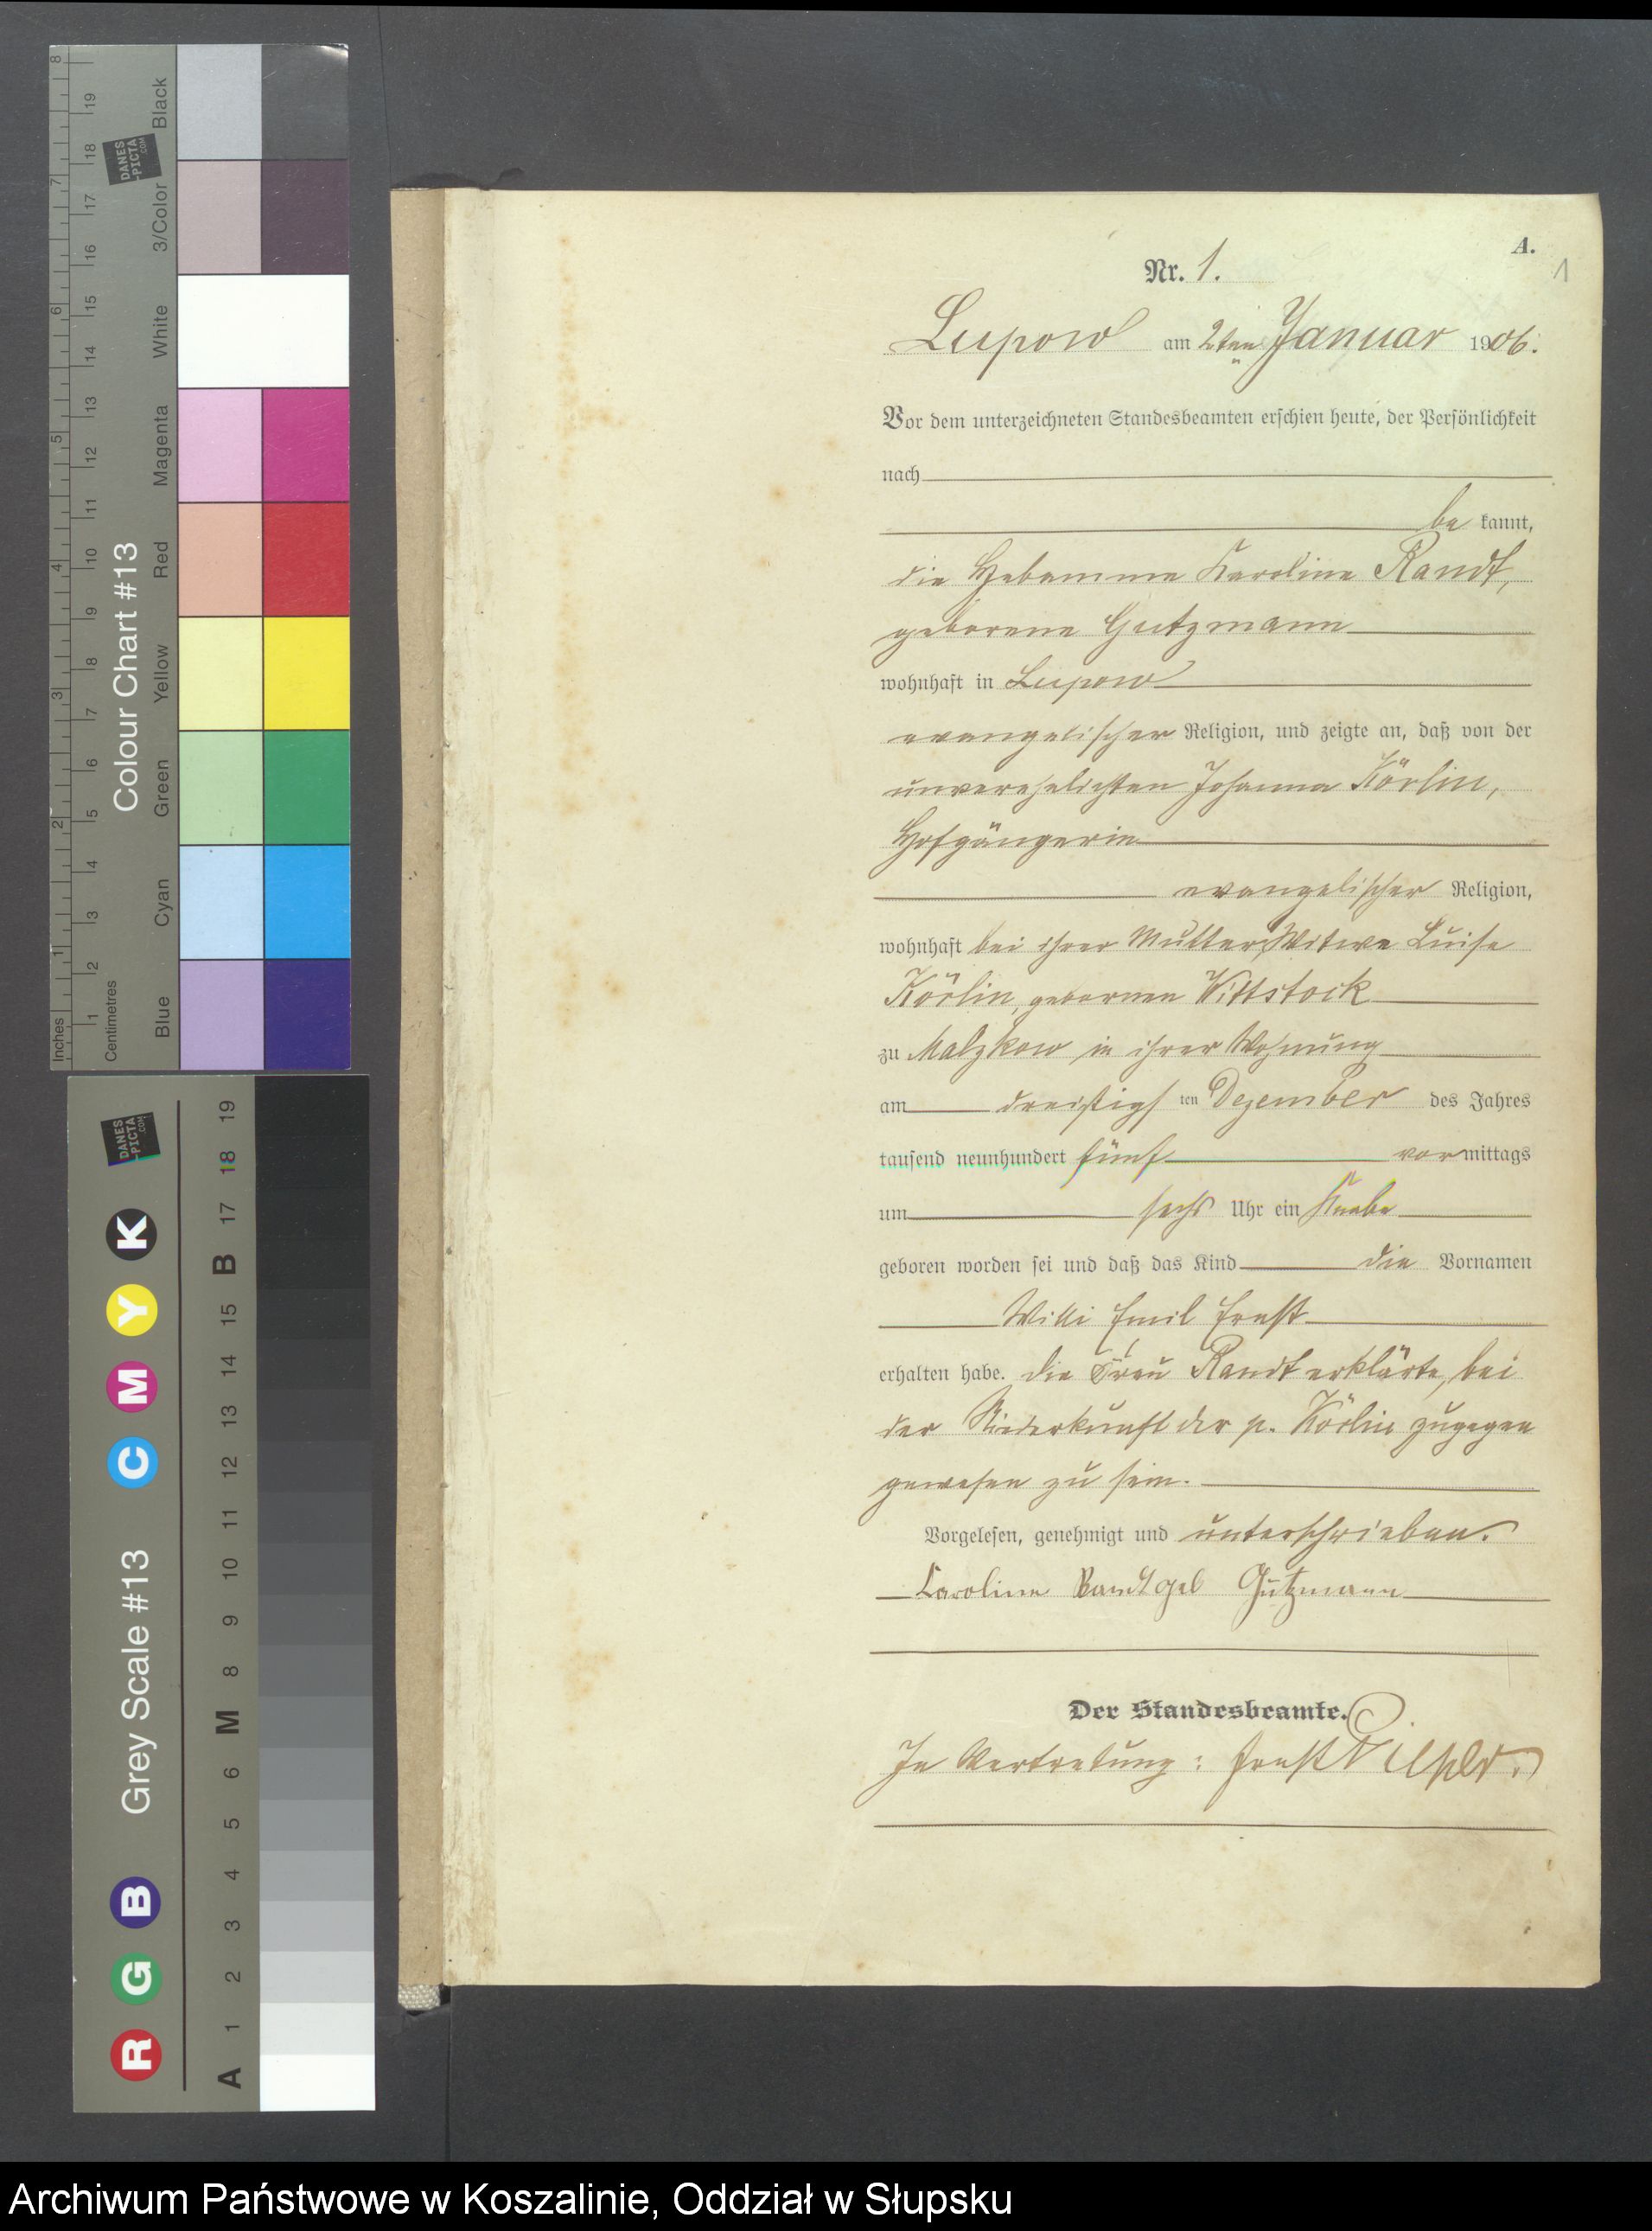 A.
1
Nr. 1.
Lupow am 2ten Januar 1906.
Vor dem unterzeichneten Standesbeamten erschien heute, der Persönlichkeit
nach
be kannt,
die Hebamme Karoline Randt,
geborene Gutzmann
wohnhaft in Lupow
evangelischer Religion, und zeigte an, daß von der
unverehelichten Johanna Körlin,
Hofgängerin
evangelischer Religion,
wohnhaft bei ihrer Mutter, Witwe Luise
Körlin, gebornen Wittstock
zu Malzkow in ihrer Wohnung
am dreißigs ten Dezember des Jahres
tausend neunhundert fünf vormittags
um sechs Uhr ein Knabe
geboren worden sei und daß das Kind die Vornamen
Willi Emil Ernst
erhalten habe. Die Frau Randt erklärte, bei
der Niederkunft der p. Körlin zugegen
gewesen zu sein.
Vorgelesen, genehmigt und unterschrieben.
Caroline Randt geb Gutzmann
Der Standesbeamte.
In Vertretung: Ernst
Inches 1 2 3 4 5 6 7 8
Centimetres 1 2 3 4 5 6 7 8 9 10 11 12 13 14 15 16 17 18 19
Colour Chart #13
Blue Cyan Green Yellow Red Magenta White 3/Color Black
DANES
-PICTA
.COM
Grey Scale #13
R G B C M Y K
DANES
-PICTA
.COM
A 1 2 3 4 5 6 M 8 9 10 11 12 13 14 15 B 17 18 19
Archiwum Państwowe w Koszalinie, Oddział w Słupsku